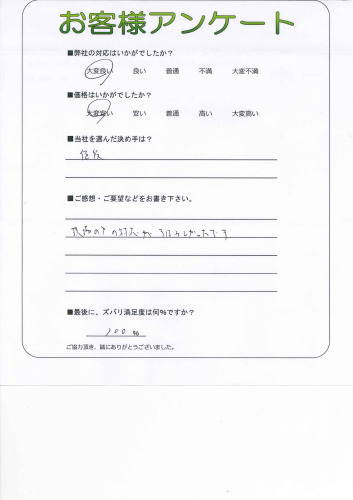 お客様アンケート
■弊社の対応はいかがでしたか？
大変良い 良い 普通 不満 大変不満
■価格はいかがでしたか？
大変安い 安い 普通 高い 大変高い
■当社を選んだ決め手は？
■ご感想・ご要望などをお書き下さい。
の対応が すばらしかったです
■最後に、ズバリ満足度は何％ですか？
100 %
ご協力頂き、誠にありがとうございました。